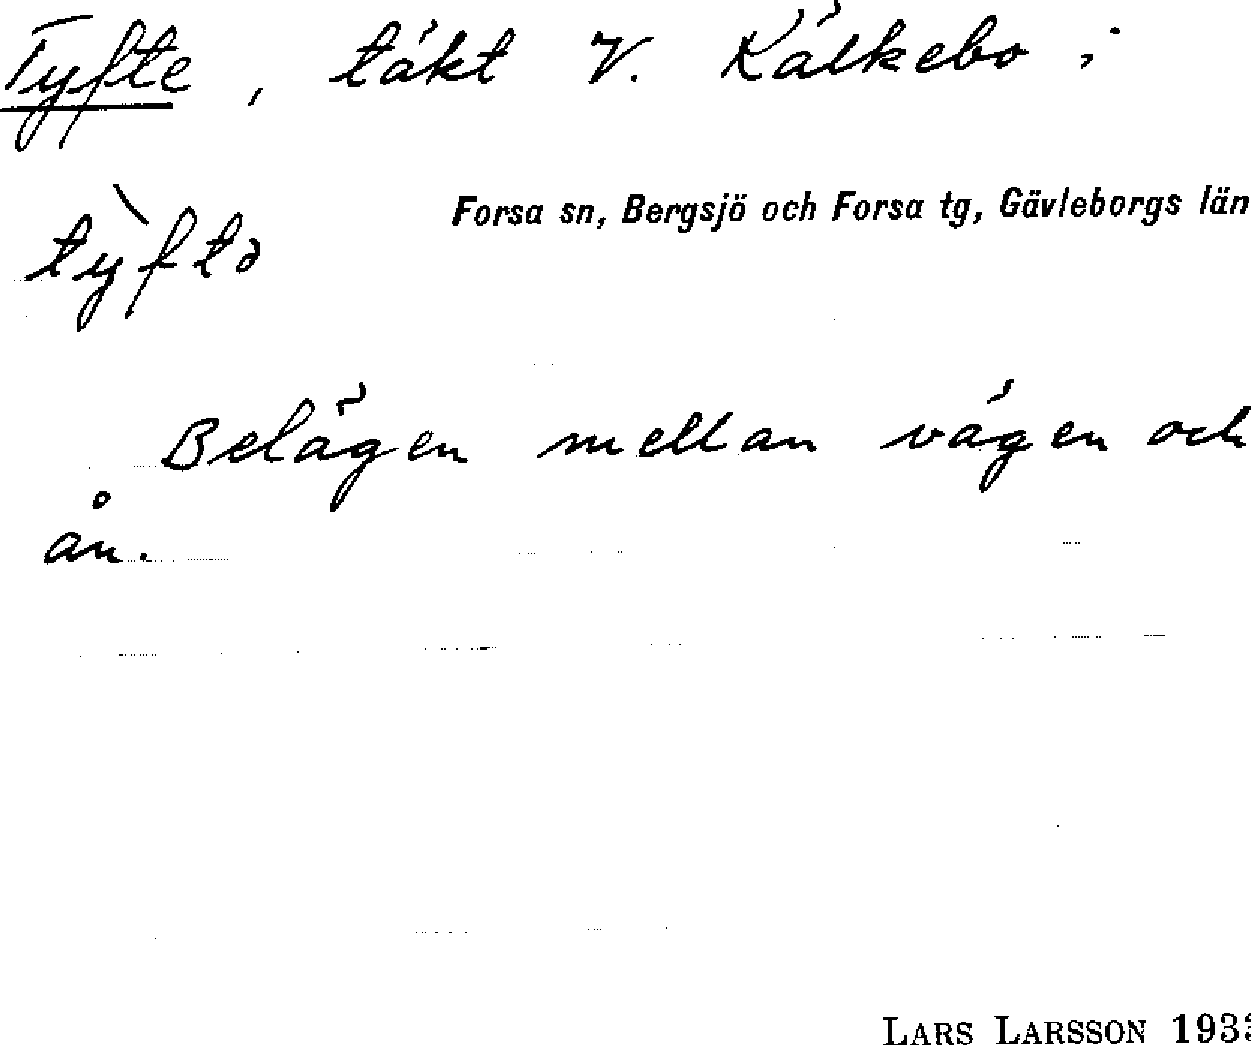 Tyfte, täkt V. Kälkebo i
Forsa sn, Bergsjö och Forsa tg, Gävleborgs län
tỳftə
Belägen mellan vägen och
ån.
LARS LARSSON 1933